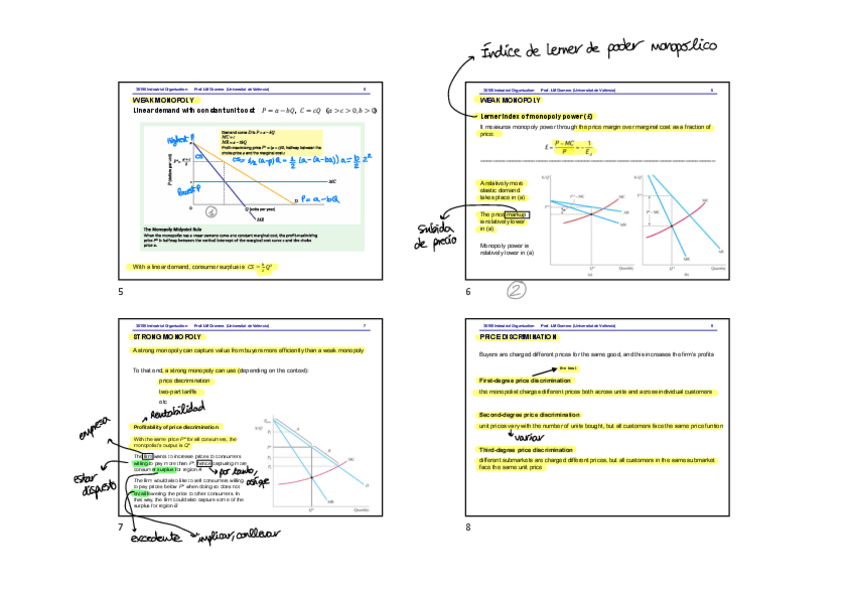 Índice de Lerner de poder monopólico
35785 Industrial Organisation Prof. LM Granero (Universitat de València) 5
WEAK MONOPOLY
Linear demand with constant unit cost P = a − bQ, C = cQ (a > c > 0, b > 0)
Highest P
CS
MC
Lowest P
P = a − bQ
Q (units per year)
MR
①
The Monopoly Midpoint Rule
When the monopolist has a linear demand curve and constant marginal cost, the profit-maximizing
price P* is halfway between the vertical intercept of the marginal cost curve and the choke
price a.
With a linear demand, consumer surplus is CS = b/2 Q²
5
35785 Industrial Organisation Prof. LM Granero (Universitat de València) 6
WEAK MONOPOLY
Lerner index of monopoly power (L)
It measures monopoly power through the price margin over marginal cost as a fraction of
price:
L = (P − MC)/P = −1/E_d
A relatively more
elastic demand
takes place in (a)
The price markup
is relatively lower
in (a)
Monopoly power is
relatively lower in (a)
subida
de precio
Quantity
(a)
Quantity
(b)
6
②
35785 Industrial Organisation Prof. LM Granero (Universitat de València) 7
STRONG MONOPOLY
A strong monopoly can capture value from buyers more efficiently than a weak monopoly
To that end, a strong monopoly can use (depending on the context):
price discrimination
two-part tariffs
etc
Rentabilidad
Profitability of price discrimination
empresa
With the same price P* for all consumers, the
monopolist's output is Q*
The firm wants to increase prices to consumers
willing to pay more than P*, hence capturing more
consumer surplus for region A
por tanto,
estar
dispuesto
The firm would also like to sell consumers willing
to pay prices below P* when doing so does not
entail lowering the price to other consumers. In
that way, the firm could also capture some of the
surplus for region B
Quantity
7
excedente
implicar, conllevar
35785 Industrial Organisation Prof. LM Granero (Universitat de València) 8
PRICE DISCRIMINATION
Buyers are charged different prices for the same good, and this increases the firm's profits
First-degree price discrimination
the monopolist charges different prices both across units and across individual customers
Second-degree price discrimination
unit prices vary with the number of units bought, but all customers face the same price function
variar
Third-degree price discrimination
different submarkets are charged different prices, but all customers in the same submarket
face the same unit price
8